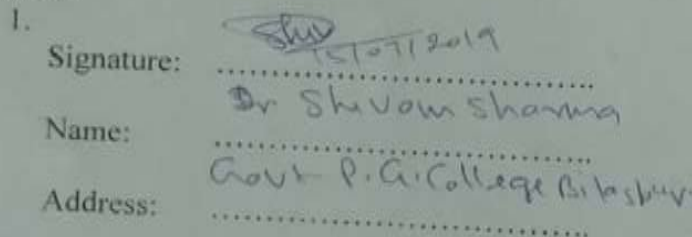 1.
Signature: Shiv 15/07/2019
Name: Dr Shivam Sharma
Address: Govt P.G. College Bilaspur